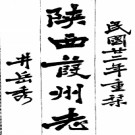 民國廿二年重印
陝西葭州志
井岳秀